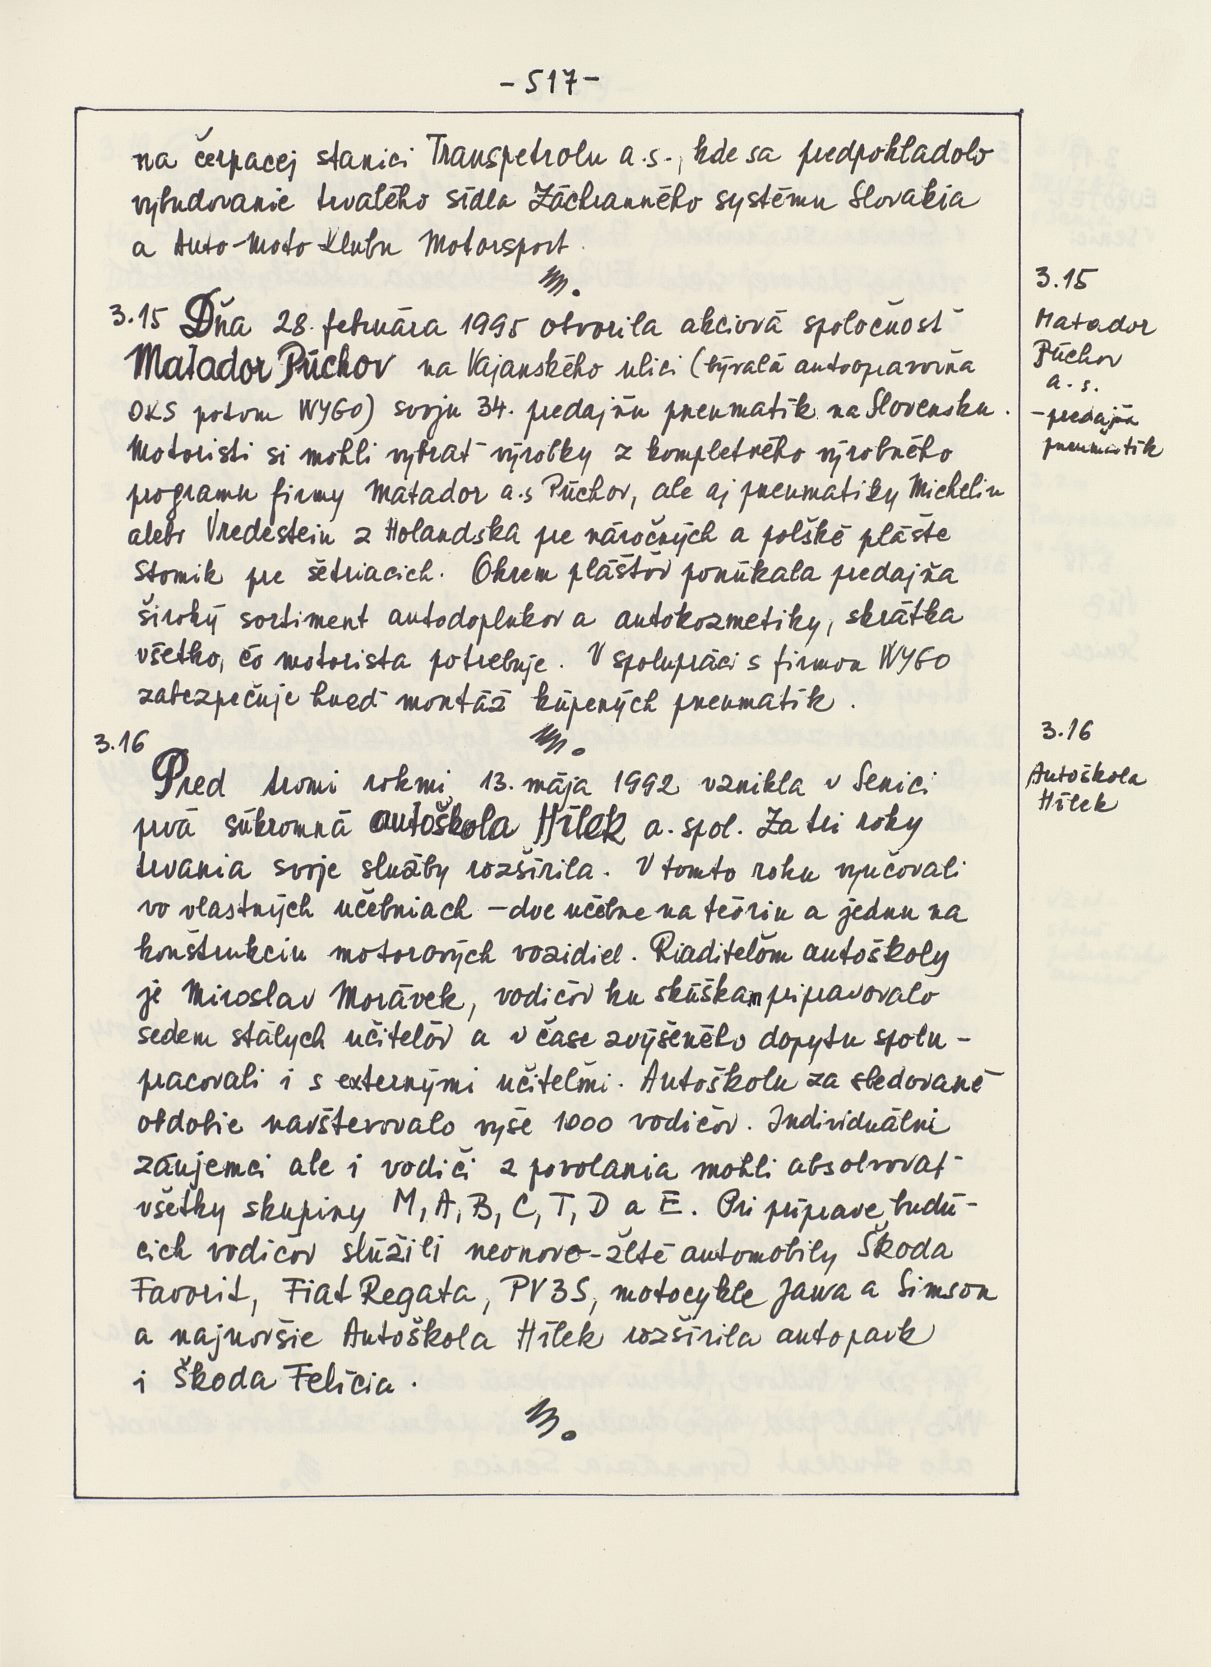 - 517 -
na čerpacej stanici Transpetrolu a.s., kde sa predpokladalo
vybudovanie trvalého sídla Záchranného systému Slovakia
a Auto-Moto Klubu Motorsport.
3.15 Dňa 28. februára 1995 otvorila akciová spoločnosť
Matador Púchov na Vajanského ulici (bývalá autoopravovňa
OKS potom WYGO) svoju 34. predajňu pneumatík na Slovensku.
Motoristi si mohli vybrať výrobky z kompletného výrobného
programu firmy Matador a.s Púchov, ale aj pneumatiky Michelin
alebo Vredestein z Holandska pre náročných a poľské plášte
Stomik pre šetriacich. Okrem plášťov ponúkala predajňa
široký sortiment autodoplnkov a autokozmetiky, skrátka
všetko, čo motorista potrebuje. V spolupráci s firmou WYGO
zabezpečuje hneď montáž kúpených pneumatík.
3.16
Pred tromi rokmi, 13. mája 1992 vznikla v Senici
prvá súkromná autoškola Hílek a. spol. Za tri roky
trvania svoje služby rozšírila. V tomto roku vyučovali
vo vlastných učebniach - dve učebne na teóriu a jednu na
konštrukciu motorových vozidiel. Riaditeľom autoškoly
je Miroslav Morávek, vodičov ku skúškam pripravovalo
sedem stálych učiteľov a v čase zvýšeného dopytu spolu-
pracovali i s externými učiteľmi. Autoškolu za sledované
obdobie navštevovalo vyše 1000 vodičov. Individuálni
záujemci ale i vodiči z povolania mohli absolvovať
všetky skupiny M, A, B, C, T, D a E. Pri príprave budú-
cich vodičov slúžili neonovo-žlté automobily Škoda
Favorit, Fiat Regata, PV3S, motocykle Jawa a Simson
a najnovšie Autoškola Hílek rozšírila autopark
i Škoda Felícia.
3.15
Matador
Púchov
a.s.
- predajňa
pneumatík
3.16
Autoškola
Hílek